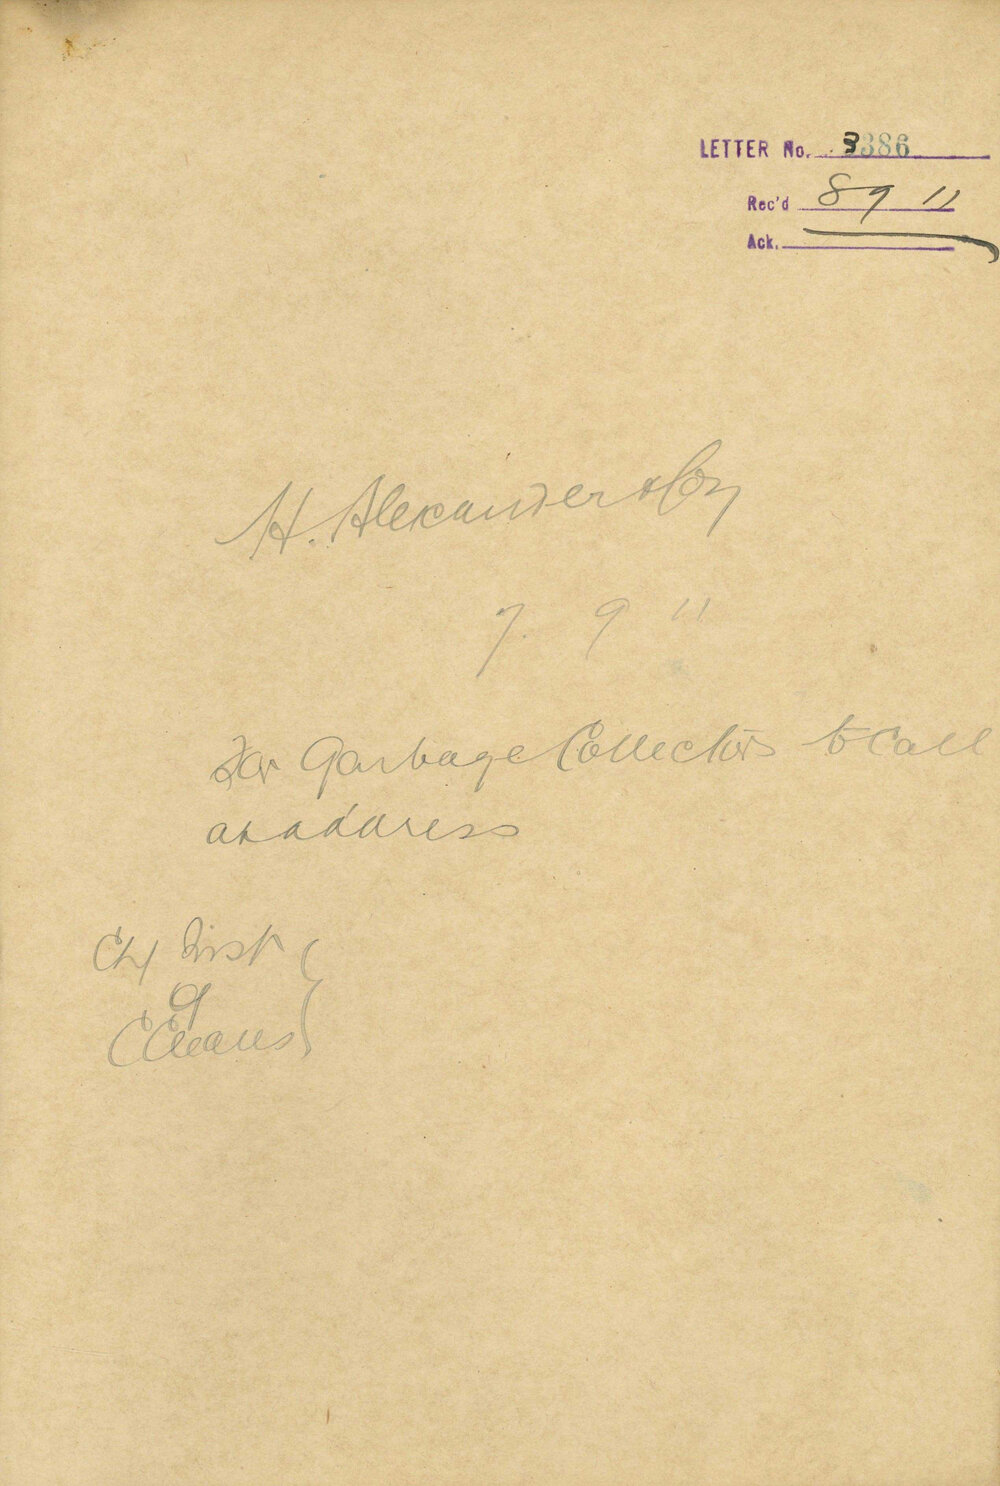 LETTER No. 3386
Rec'd 8 9 11
Ack.
H. Alexander & Coy
7. 9 11
For Garbage Collectors to Call
at address
Chf Insp
of
Cleans